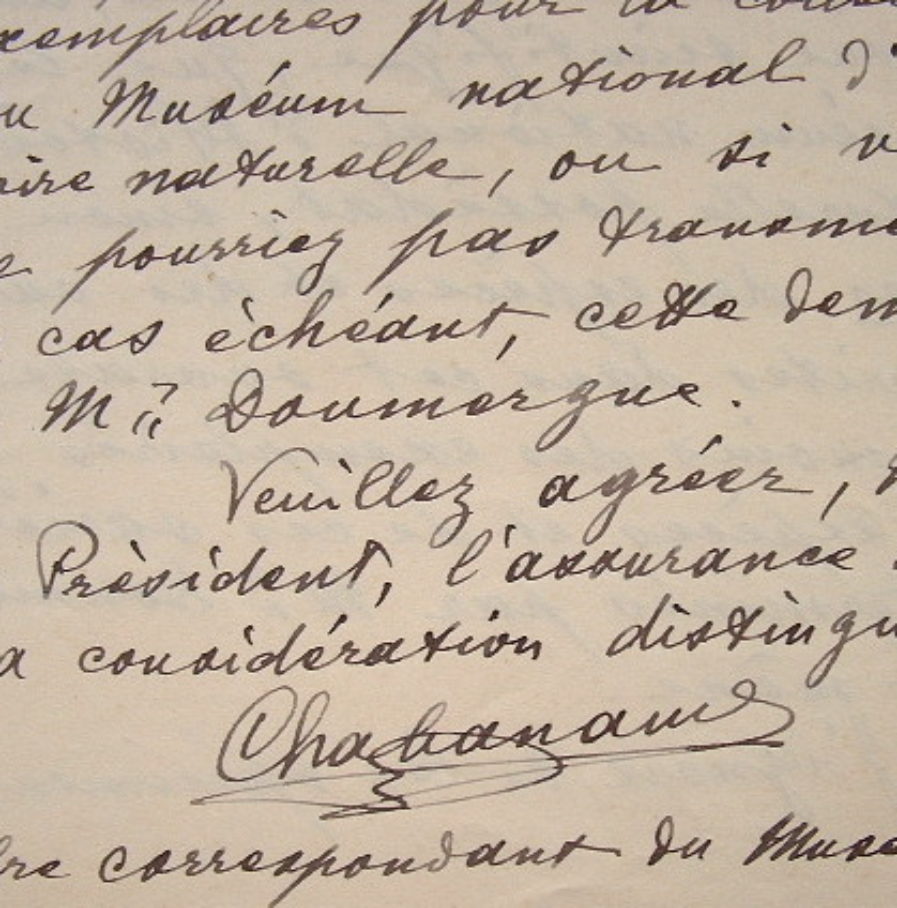 xemplaires pour la conse
u Muséum national d'
oire naturelle, ou si v
e pourriez pas transme
cas échéant, cette dem
Mr Doumergue.
Veuillez agréer, M
Président, l'assurance
a considération distingu
Chabanaud
bre correspondant du Musé